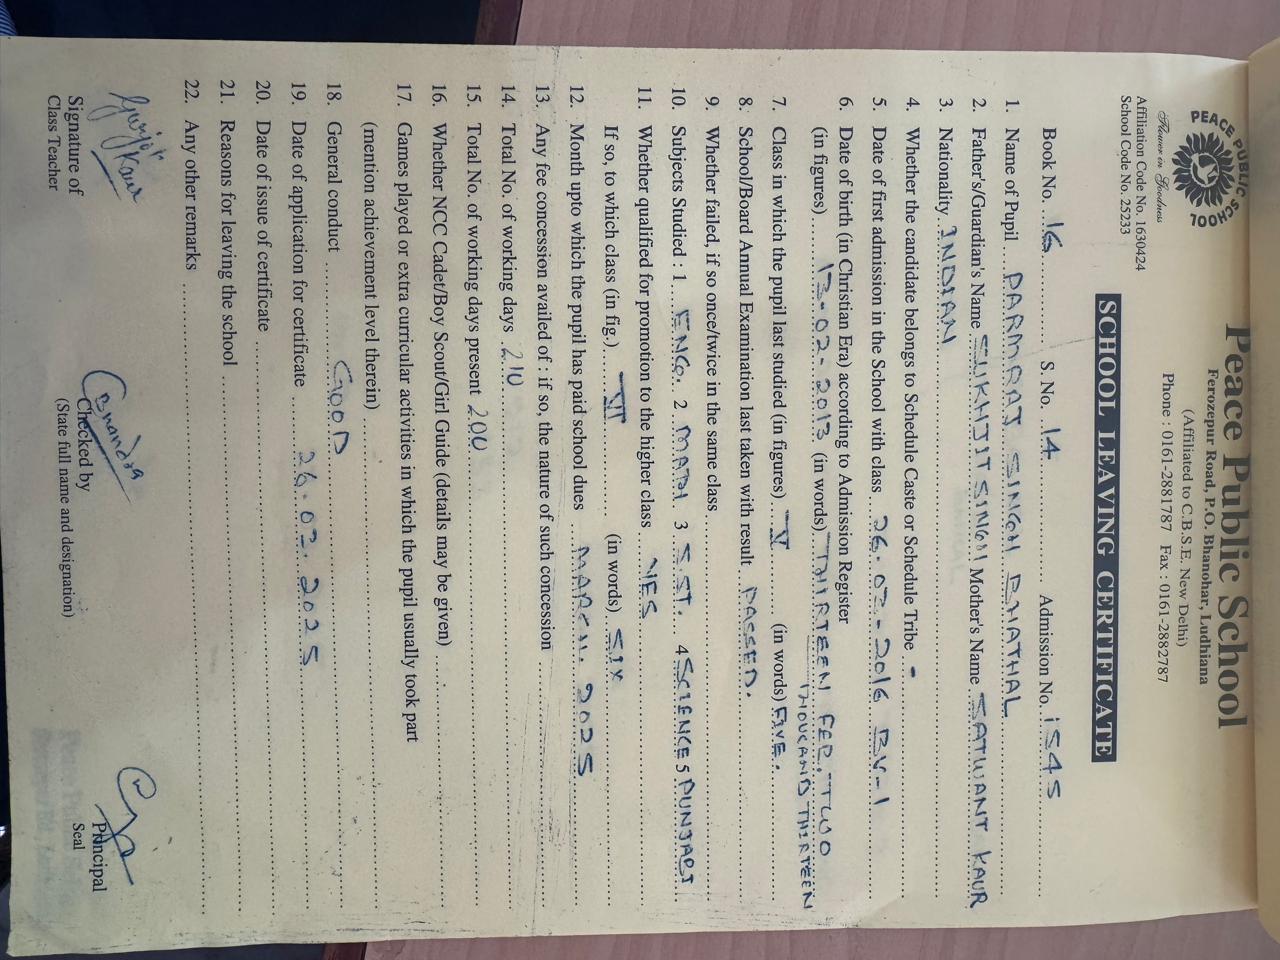 PEACE PUBLIC SCHOOL
Flower in Goodness
Affiliation Code No. 1630424
School Code No. 25233
Peace Public School
Ferozepur Road, P.O. Bhanohar, Ludhiana
(Affiliated to C.B.S.E. New Delhi)
Phone : 0161-2881787 Fax : 0161-2882787
SCHOOL LEAVING CERTIFICATE
Book No. 16 S. No. 14 Admission No. 1545
1. Name of Pupil PARMRAJ SINGH BHATHAL
2. Father's/Guardian's Name SUKHJIT SINGH Mother's Name SATWANT KAUR
3. Nationality INDIAN
4. Whether the candidate belongs to Schedule Caste or Schedule Tribe -
5. Date of first admission in the School with class 26-02-2016 BV-1
6. Date of birth (in Christian Era) according to Admission Register
(in figures) 13-02-2013 (in words) THIRTEEN FEB, TWO
THOUSAND THIRTEEN
7. Class in which the pupil last studied (in figures) V (in words) FIVE.
8. School/Board Annual Examination last taken with result PASSED.
9. Whether failed, if so once/twice in the same class
10. Subjects Studied : 1 ENG. 2 MATH. 3 S.ST. 4 SCIENCE 5 PUNJABI
11. Whether qualified for promotion to the higher class YES
If so, to which class (in fig.) VI (in words) SIX
12. Month upto which the pupil has paid school dues MARCH. 2025
13. Any fee concession availed of : if so, the nature of such concession
14. Total No. of working days 210
15. Total No. of working days present 200
16. Whether NCC Cadet/Boy Scout/Girl Guide (details may be given)
17. Games played or extra curricular activities in which the pupil usually took part
(mention achievement level therein)
18. General conduct GOOD
19. Date of application for certificate 26.03.2025
20. Date of issue of certificate
21. Reasons for leaving the school
22. Any other remarks
Signature of
Class Teacher
Checked by
(State full name and designation)
Principal
Seal